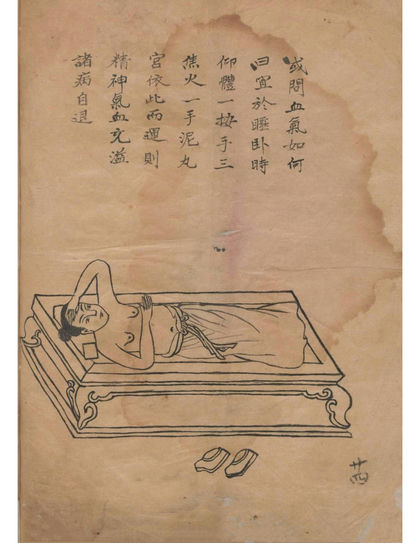 或問血氣如何
曰宜於睡卧時
仰體一按手三
焦火一手泥丸
宮依此而運則
精神氣血充溢
諸病自退
廿四